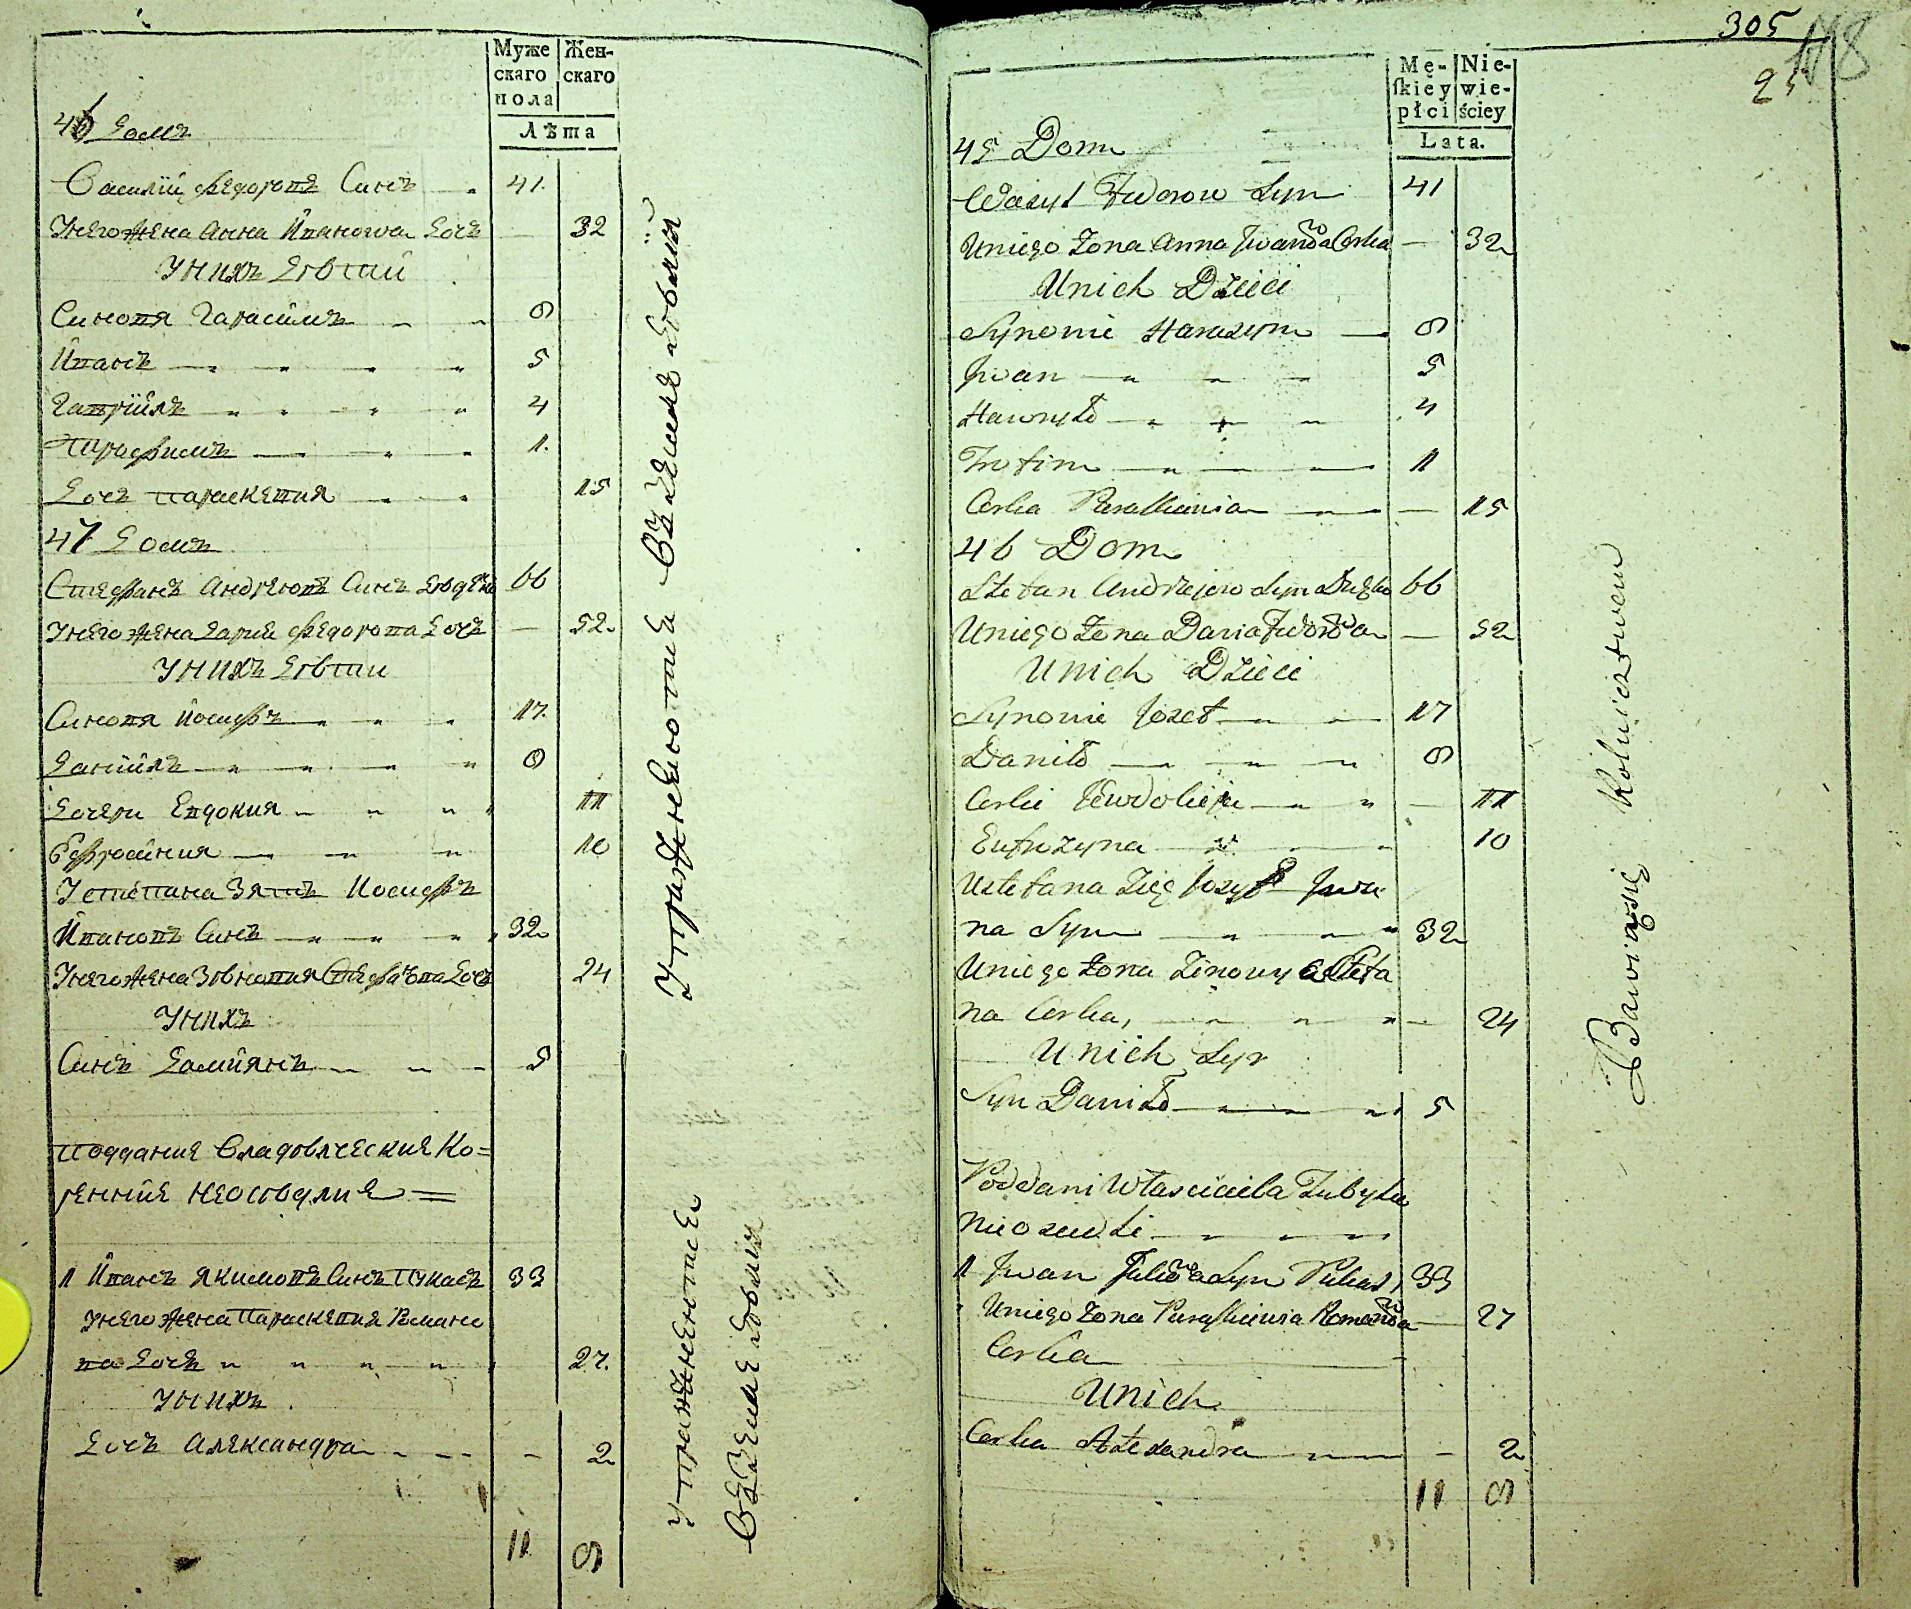 Муже
скаго
пола
Жен-
скаго
Лѣта
46 Домъ
Василій Федоровъ Синъ 41.
Унего жена Анна Иванова Дочъ — 32
Унихъ Дѣти
Синовя Гарасимъ 8
Иванъ 5
Гавріилъ 4
Трофимъ 1.
Дочъ Параскевия 15
47 Домъ
Стефанъ Андреювъ Синъ 66
Унего жена Дария Федорова Дочъ — 52
Унихъ Дѣти
Синовя Иосифъ 17.
Даніилъ 8
Дочери Евдокия 11
Ефросиния 10
У Степана Зять Иосифъ
Ивановъ Синъ 32
Унего жена Зѣновия Стефанова Дочъ 24
Унихъ
Синъ Дамиянъ 5
Поддание Владовлческия Ко=
ренние неосѣдлие =
1 Иванъ Якимовъ Синъ Пукасъ 33
Унего жена Параскевия Романо
ва Дочъ 27.
Унихъ
Дочъ Александра - 2
11 8
Упражнюются Вземледѣлии
Упражнентсе
Вземледѣлия
305
178
25
Mę-
skiey
płci
Nie-
wie-
ściey
Lata.
45 Dom
Wasyl Fedorow Syn 41
Uniego Zona Anna Jwanowa Corka — 32
Unich Dzieci
Synowie Harasym 8
Jwan 5
Hawryło 4
Trofim 1
Corka Paraskiewia — 15
46 Dom
Stefan Andrzejow Syn 66
Uniego Zona Daria Fedorowa — 52
Unich Dzieci
Synowie Jozef 17
Daniło 8
Corki Jewdokija — 11
Eufrozyna 10
Ustefana Zięc Jozyf Jwa
na Syn 32
Uniego Zona Zinowya Stefa
na Corka, — 24
Unich Syn
Syn Daniło 5
Poddani Własciciela Tubylce
nieosiedli
1 Jwan Syn Pukas, 33
Uniego Zona Paraskiewia Romanowa — 27
Corka
Unich
Corka Alexandra - 2
11 8
Bawiąsię Rolniczstwem